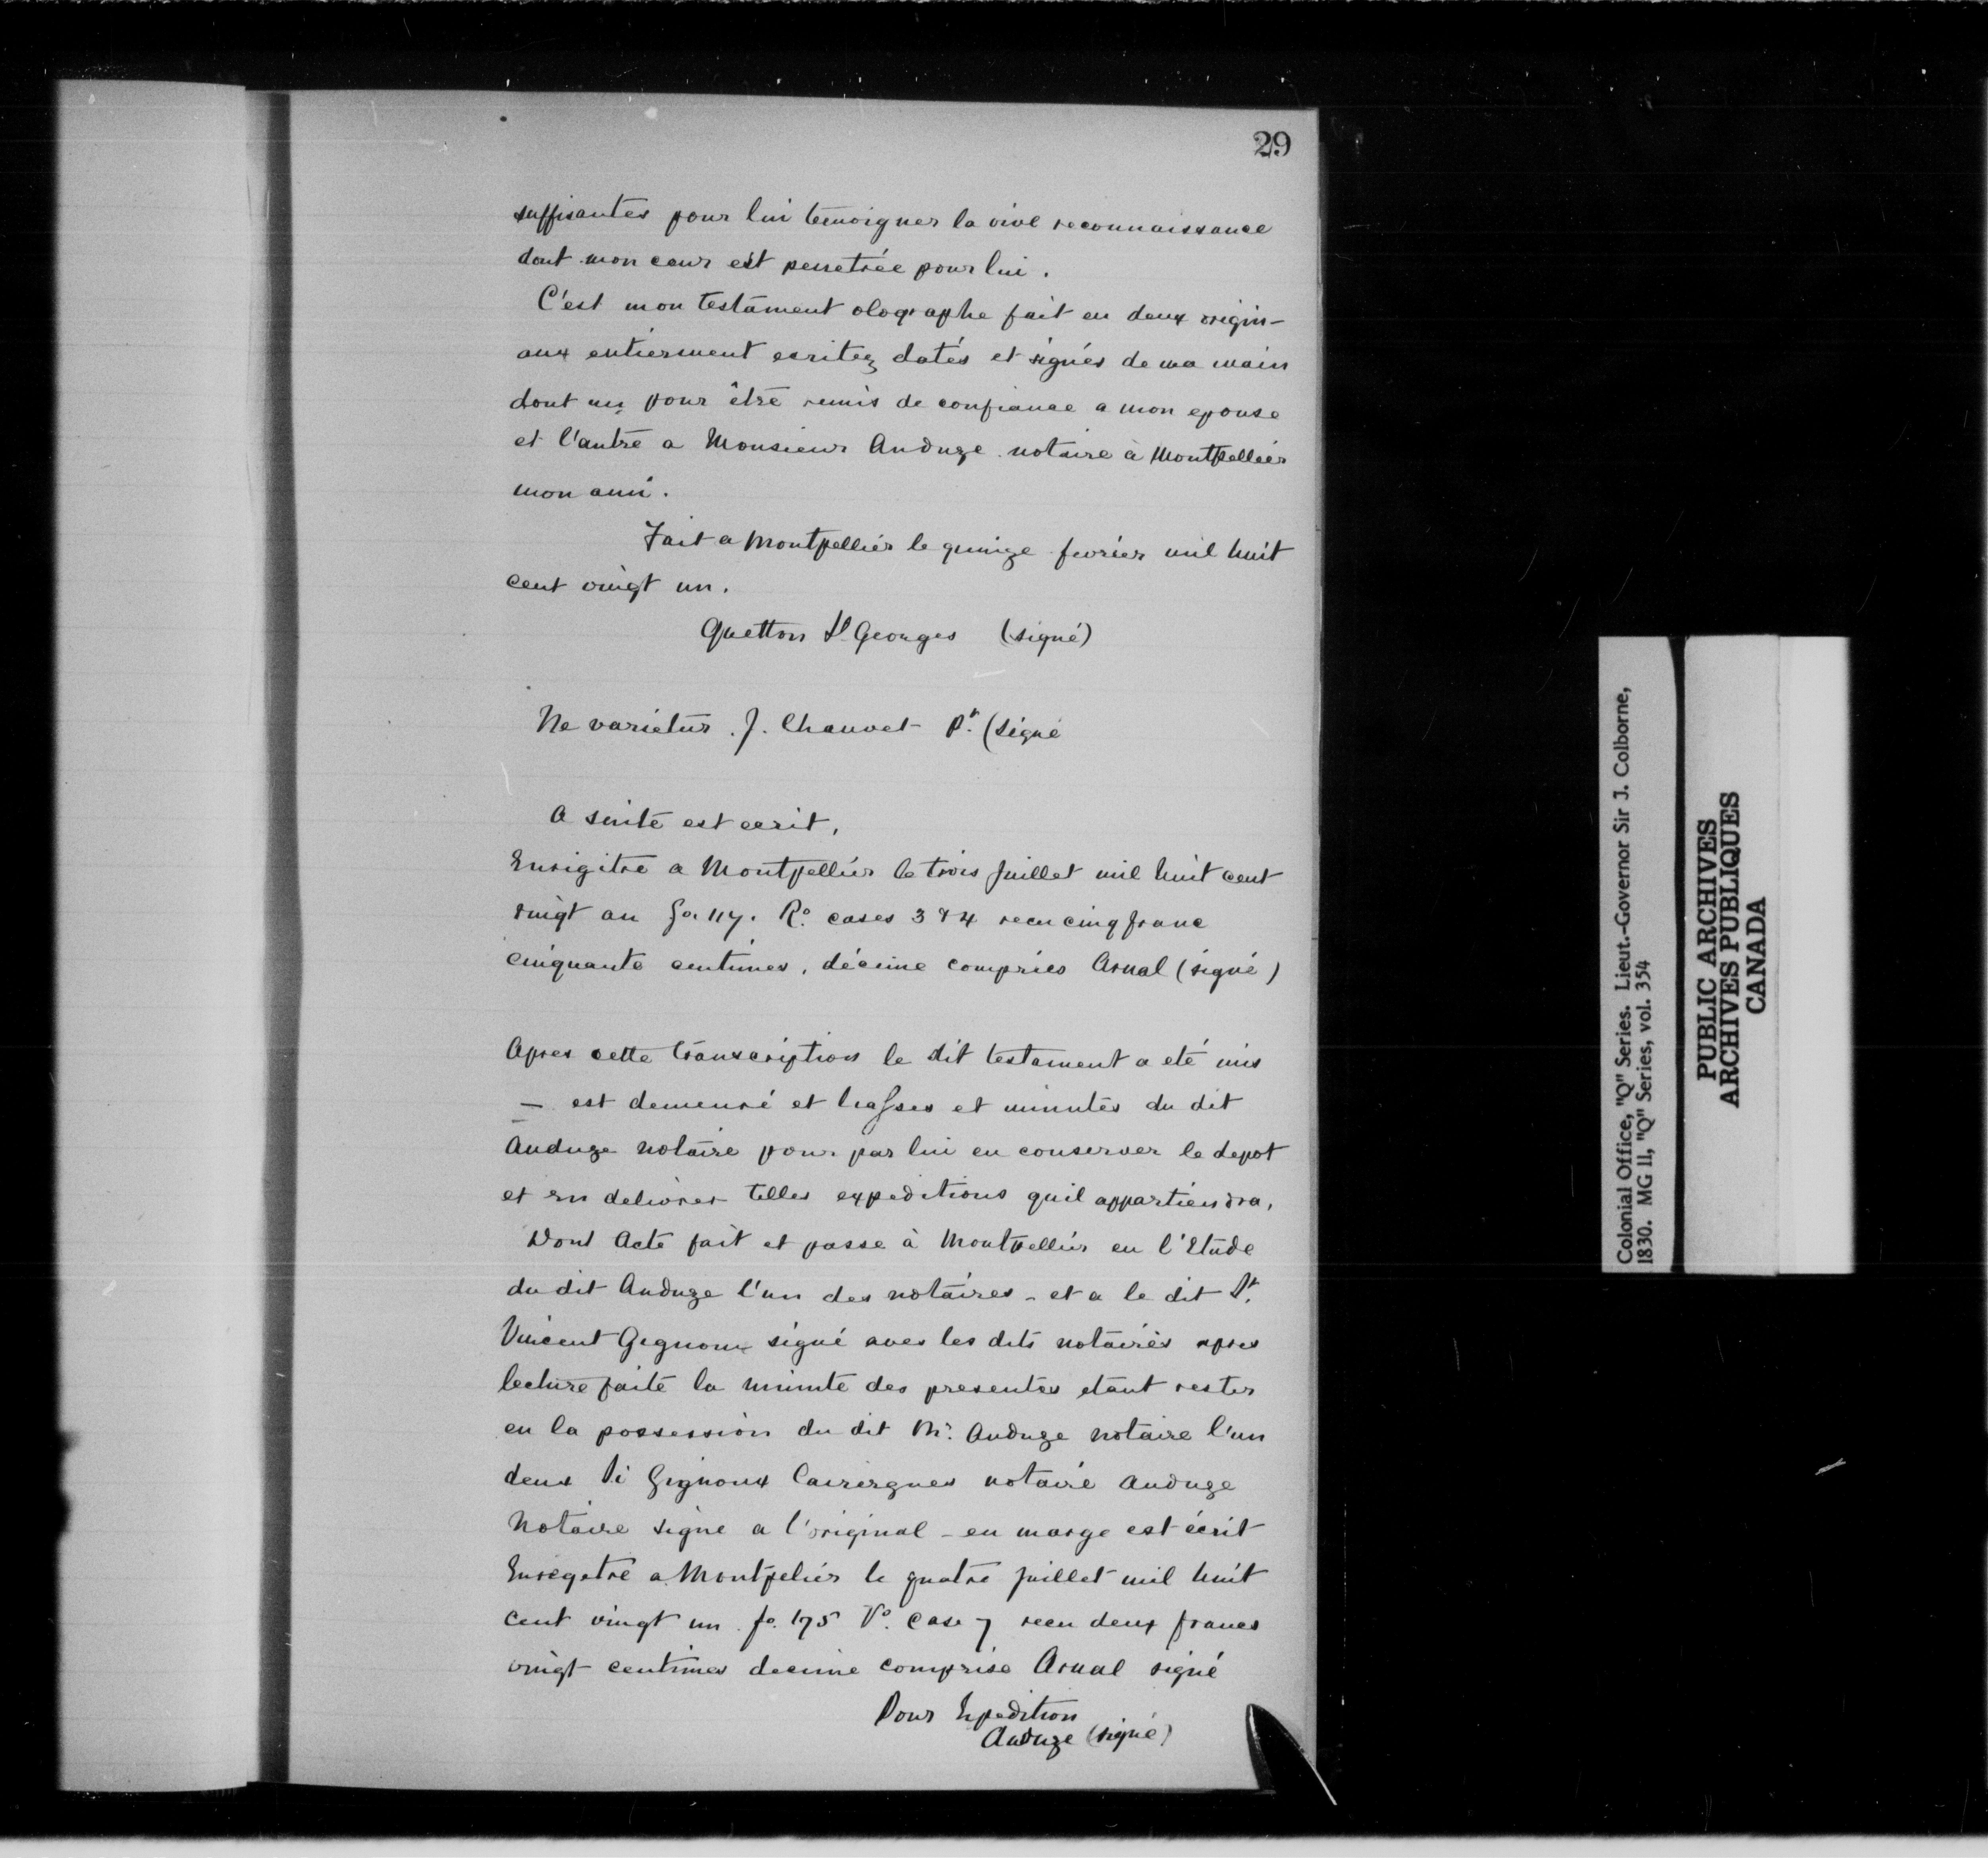 29
suffisantes pour lui temoigner la vive reconnaissance
dont mon cœur est penetrée pour lui.
C'est mon testament olographe fait en deux origin-
aux entierment ecrites datés et signés de ma main
dont un pour être remis de confiance a mon epouse
et l'autre a Monsieur Anduze notaire à Montpellier
mon ami.
Fait a Montpellier le quinze fevrier mil huit
cent vingt un.
Quetton St Georges (signé)
Ne varietur. J. Chauvet Pt. (signé
A suite est ecrit,
Enrigitre a Montpellier le trois Juillet mil huit cent
vingt un fo. 117. Ro. cases 3 & 4 recu cinq franc
cinquante centimes, décime compriés Arnal (signé)
Apres cette transcription le dit testament a eté mis
— est demeuré et liasses et minutes du dit
Anduze notaire pour par lui en conserver le depot
et en delivrer telles expeditions quil appartiendra,
Dont Acte fait et passe à Montpellier en l'Etude
du dit Anduze l'un des notaires - et a le dit St.
Vincent Gignoux signé avec les dits notairès apres
lecture faite la minute des presentes etant rester
en la possession du dit Mr. Anduze notaire l'un
deux Gignoux notaire Anduze
Notaire signe a l'original - en marge est écrit
Enregetré a Montpelier le quatre juillet mil huit
cent vingt un fo. 175 Vo. Case 7 recu deux francs
vingt centimes decime comprise Arnal signé
Pour Expedition
Anduze (signé)
Colonial Office, "Q" Series. Lieut.-Governor Sir J. Colborne,
1830. MG 11, "Q" Series, vol. 354
PUBLIC ARCHIVES
ARCHIVES PUBLIQUES
CANADA